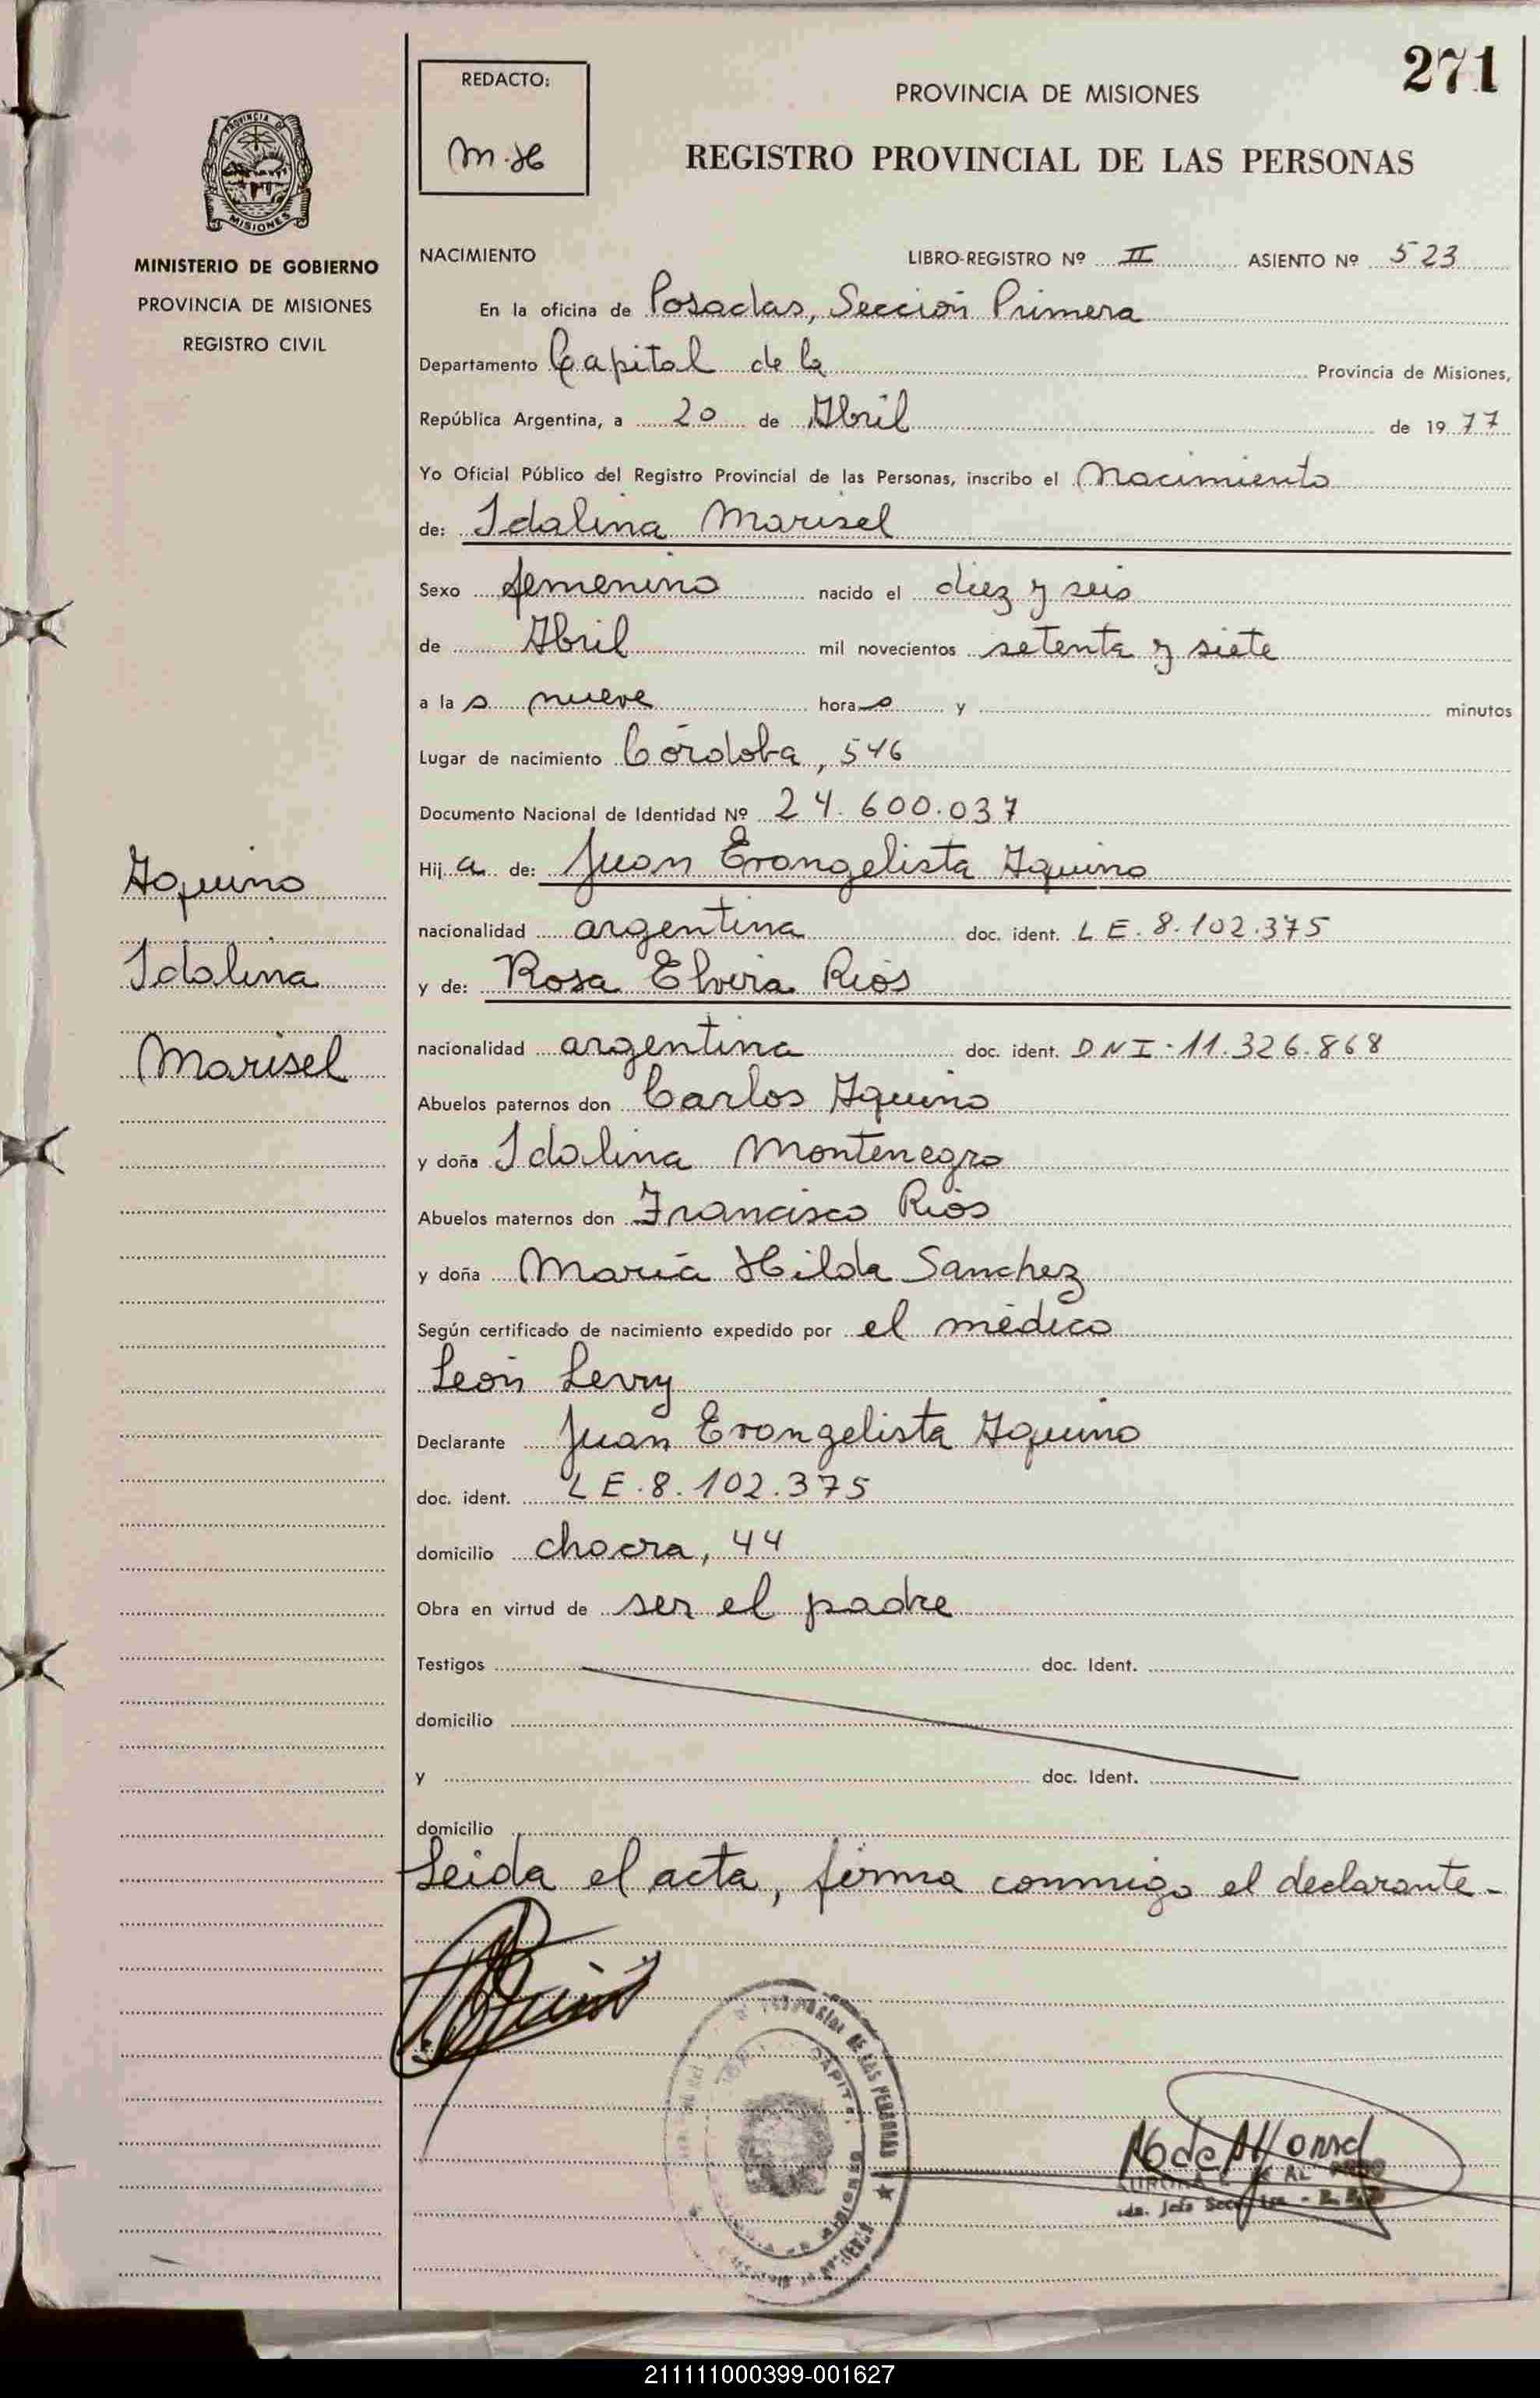 271
REDACTO:
M.H
PROVINCIA DE MISIONES
REGISTRO PROVINCIAL DE LAS PERSONAS
PROVINCIA DE
MISIONES
MINISTERIO DE GOBIERNO
PROVINCIA DE MISIONES
REGISTRO CIVIL
NACIMIENTO LIBRO-REGISTRO Nº II ASIENTO Nº 523
En la oficina de Posadas, Sección Primera
Departamento Capital de la Provincia de Misiones,
República Argentina, a 20 de Abril de 1977
Yo Oficial Público del Registro Provincial de las Personas, inscribo el Nacimiento
de: Idalina Marisel
Sexo femenino nacido el diez y seis
de Abril mil novecientos setenta y siete
a las nueve horas y minutos
Lugar de nacimiento Córdoba, 546
Documento Nacional de Identidad Nº 24.600.037
Hija de: Juan Evangelista Aquino
nacionalidad argentina doc. ident. LE. 8.102.375
y de: Rosa Elvira Ríos
nacionalidad argentina doc. ident. DNI-11.326.868
Abuelos paternos don Carlos Aquino
y doña Idalina Montenegro
Abuelos maternos don Francisco Ríos
y doña María Hilda Sanchez
Según certificado de nacimiento expedido por el médico
León Levry
Declarante Juan Evangelista Aquino
doc. ident. LE.8.102.375
domicilio chacra, 44
Obra en virtud de ser el padre
Testigos doc. Ident.
domicilio
y doc. Ident.
domicilio
Leida el acta, firma conmigo el declarante-
Aquino
Idalina
Marisel
DE LAS PERSONAS
211111000399-001627